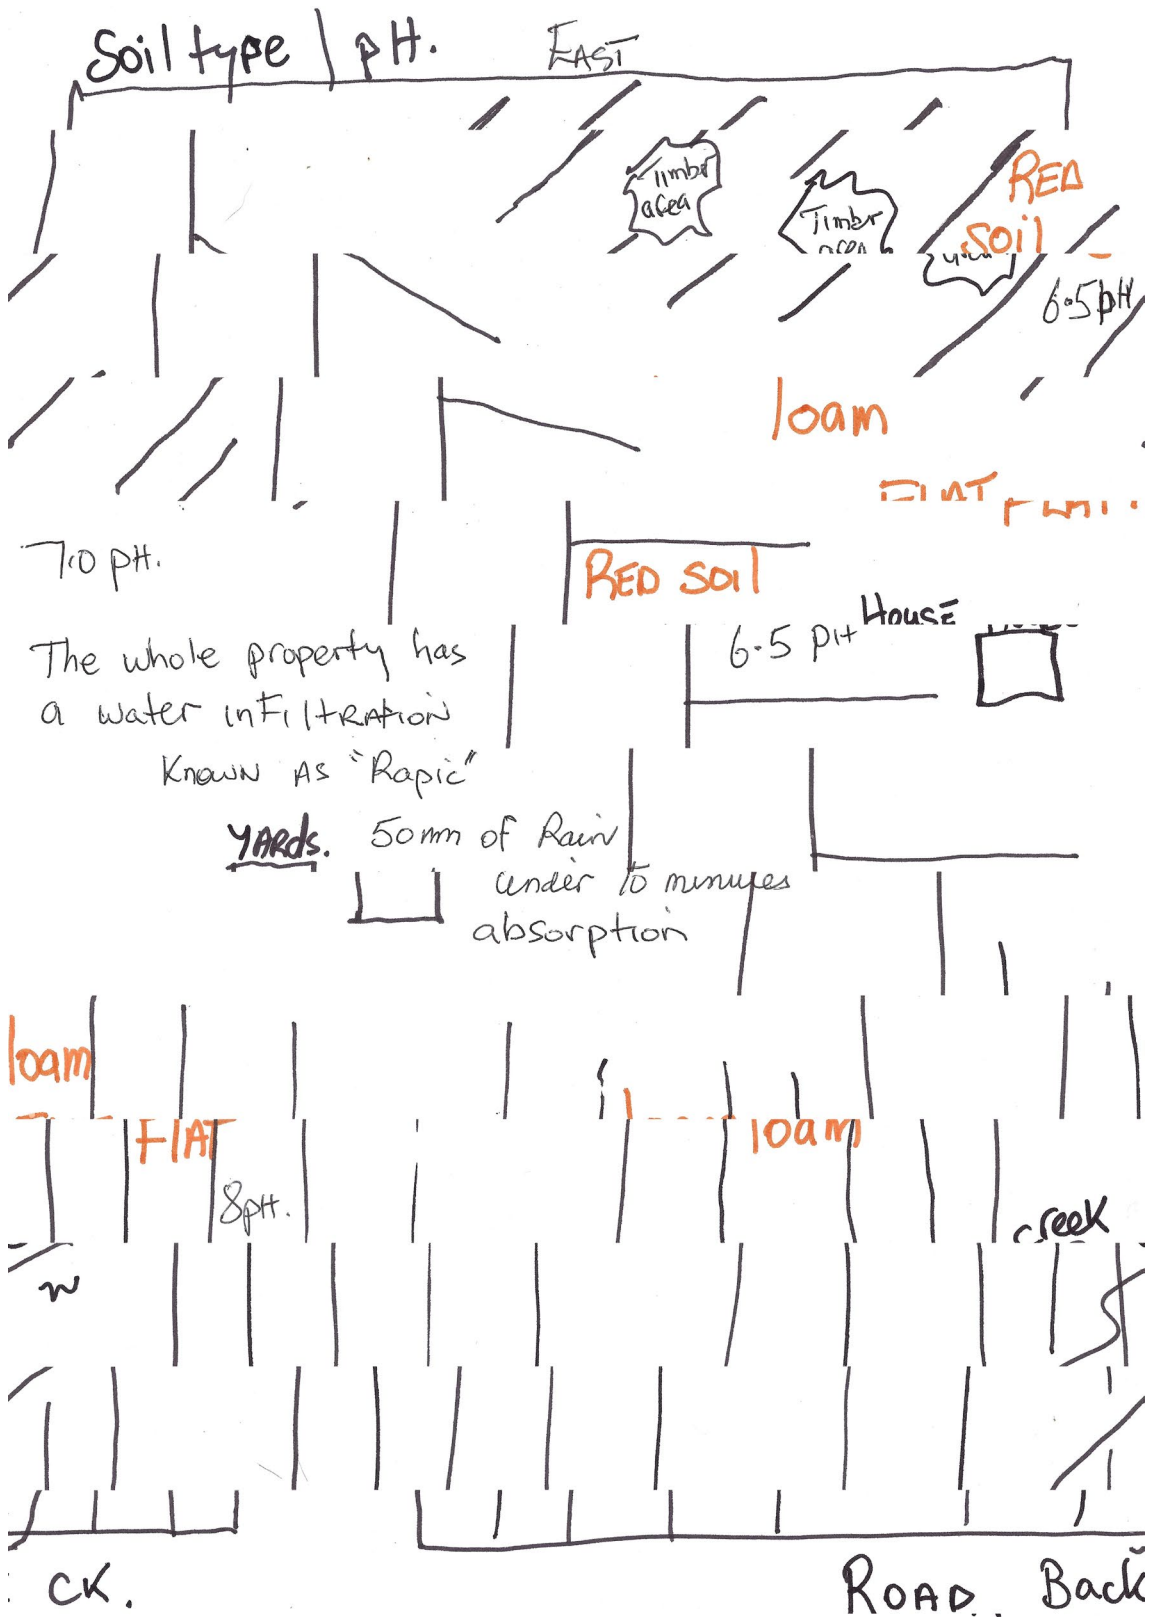 Soil type / pH.
EAST
Timber area
Timber area
RED SOIL
6.5 pH
loam
FLAT
7.0 pH.
RED SOIL
HOUSE
6.5 pH
The whole property has
a water inFiltRATION
KNOWN AS "Rapic"
YARds.
50mm of Rain
under 15 minutes
absorption
loam
loam
FlAT
8pH.
creek
N
CK.
ROAD
Back